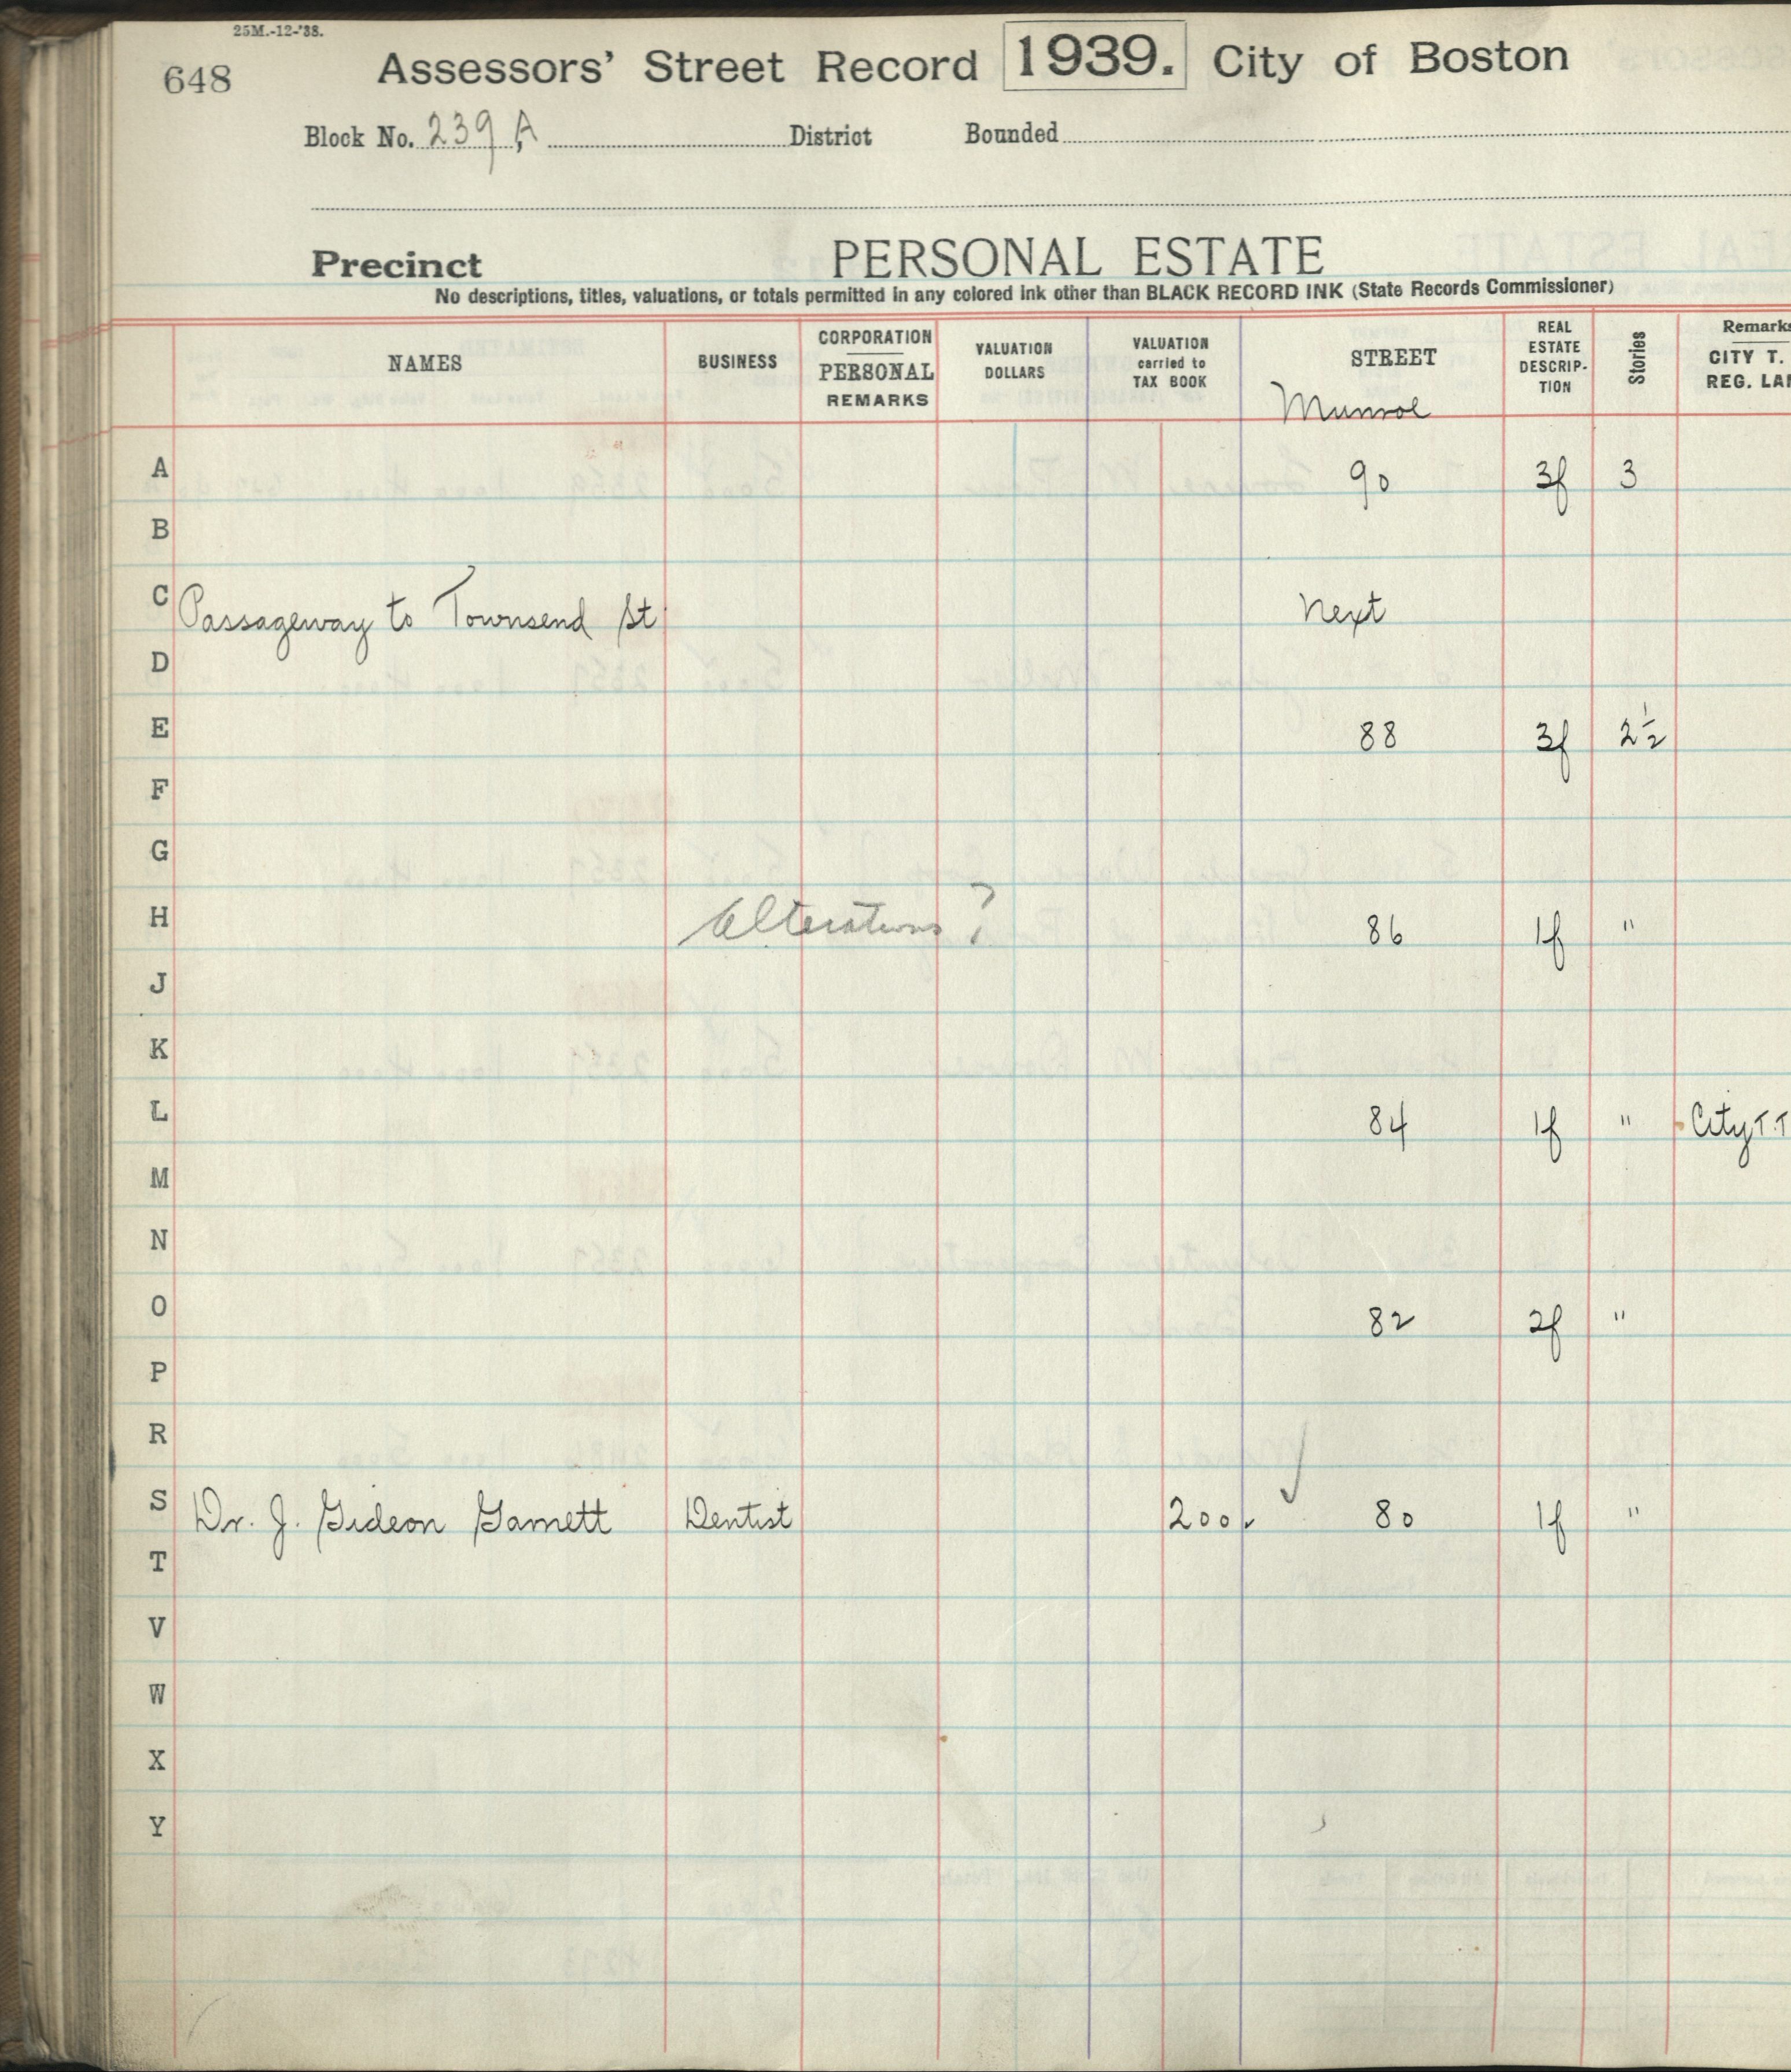 25M.-12-'38.
648 Assessors' Street Record 1939. City of Boston
Block No. 239A District Bounded
Precinct PERSONAL ESTATE
No descriptions, titles, valuations, or totals permitted in any colored ink other than BLACK RECORD INK (State Records Commissioner)
NAMES BUSINESS CORPORATION PERSONAL REMARKS VALUATION DOLLARS VALUATION carried to TAX BOOK STREET REAL ESTATE DESCRIP-TION Stories Remarks CITY T. REG. LAN
Munroe
A 90 3f 3
B
C Passageway to Townsend St Next
D
E 88 3f 2½
F
G
H Alterations? 86 1f "
J
K
L 84 1f " City T.T
M
N
O 82 2f "
P
R
S Dr. J. Gideon Garnett Dentist 200 80 1f "
T
V
W
X
Y